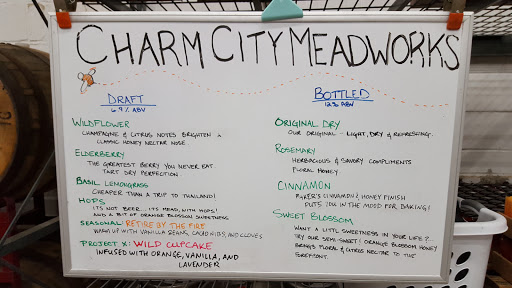 CHARM CITY MEADWORKS
DRAFT
6.9% ABV
WILDFLOWER
CHAMPAGNE & CITRUS NOTES BRIGHTEN A
CLASSIC HONEY NECTAR NOSE
ELDERBERRY
THE GREATEST BERRY YOU NEVER EAT.
TART DRY PERFECTION
BASIL LEMONGRASS
CHEAPER THAN A TRIP TO THAILAND!
HOPS
IT'S NOT BEER... IT'S MEAD, WITH HOPS!
AND A BIT OF ORANGE BLOSSOM SWEETNESS
SEASONAL: RETIRE BY THE FIRE
WARM UP WITH VANILLA BEANS, CACAO NIBS, AND CLOVES
PROJECT X: WILD CUPCAKE
INFUSED WITH ORANGE, VANILLA, AND
LAVENDER
BOTTLED
12% ABV
ORIGINAL DRY
OUR ORIGINAL - LIGHT, DRY & REFRESHING.
ROSEMARY
HERBACIOUS & SAVORY COMPLIMENTS
FLORAL HONEY
CINNAMON
BAKER'S CINNAMON & HONEY FINISH
PUTS YOU IN THE MOOD FOR BAKING!
SWEET BLOSSOM
WANT A LITTL SWEETNESS IN YOUR LIFE?..
TRY OUR SEMI-SWEET! ORANGE BLOSSOM HONEY
BRINGS FLORAL & CITRUS NECTAR TO THE
FOREFRONT.